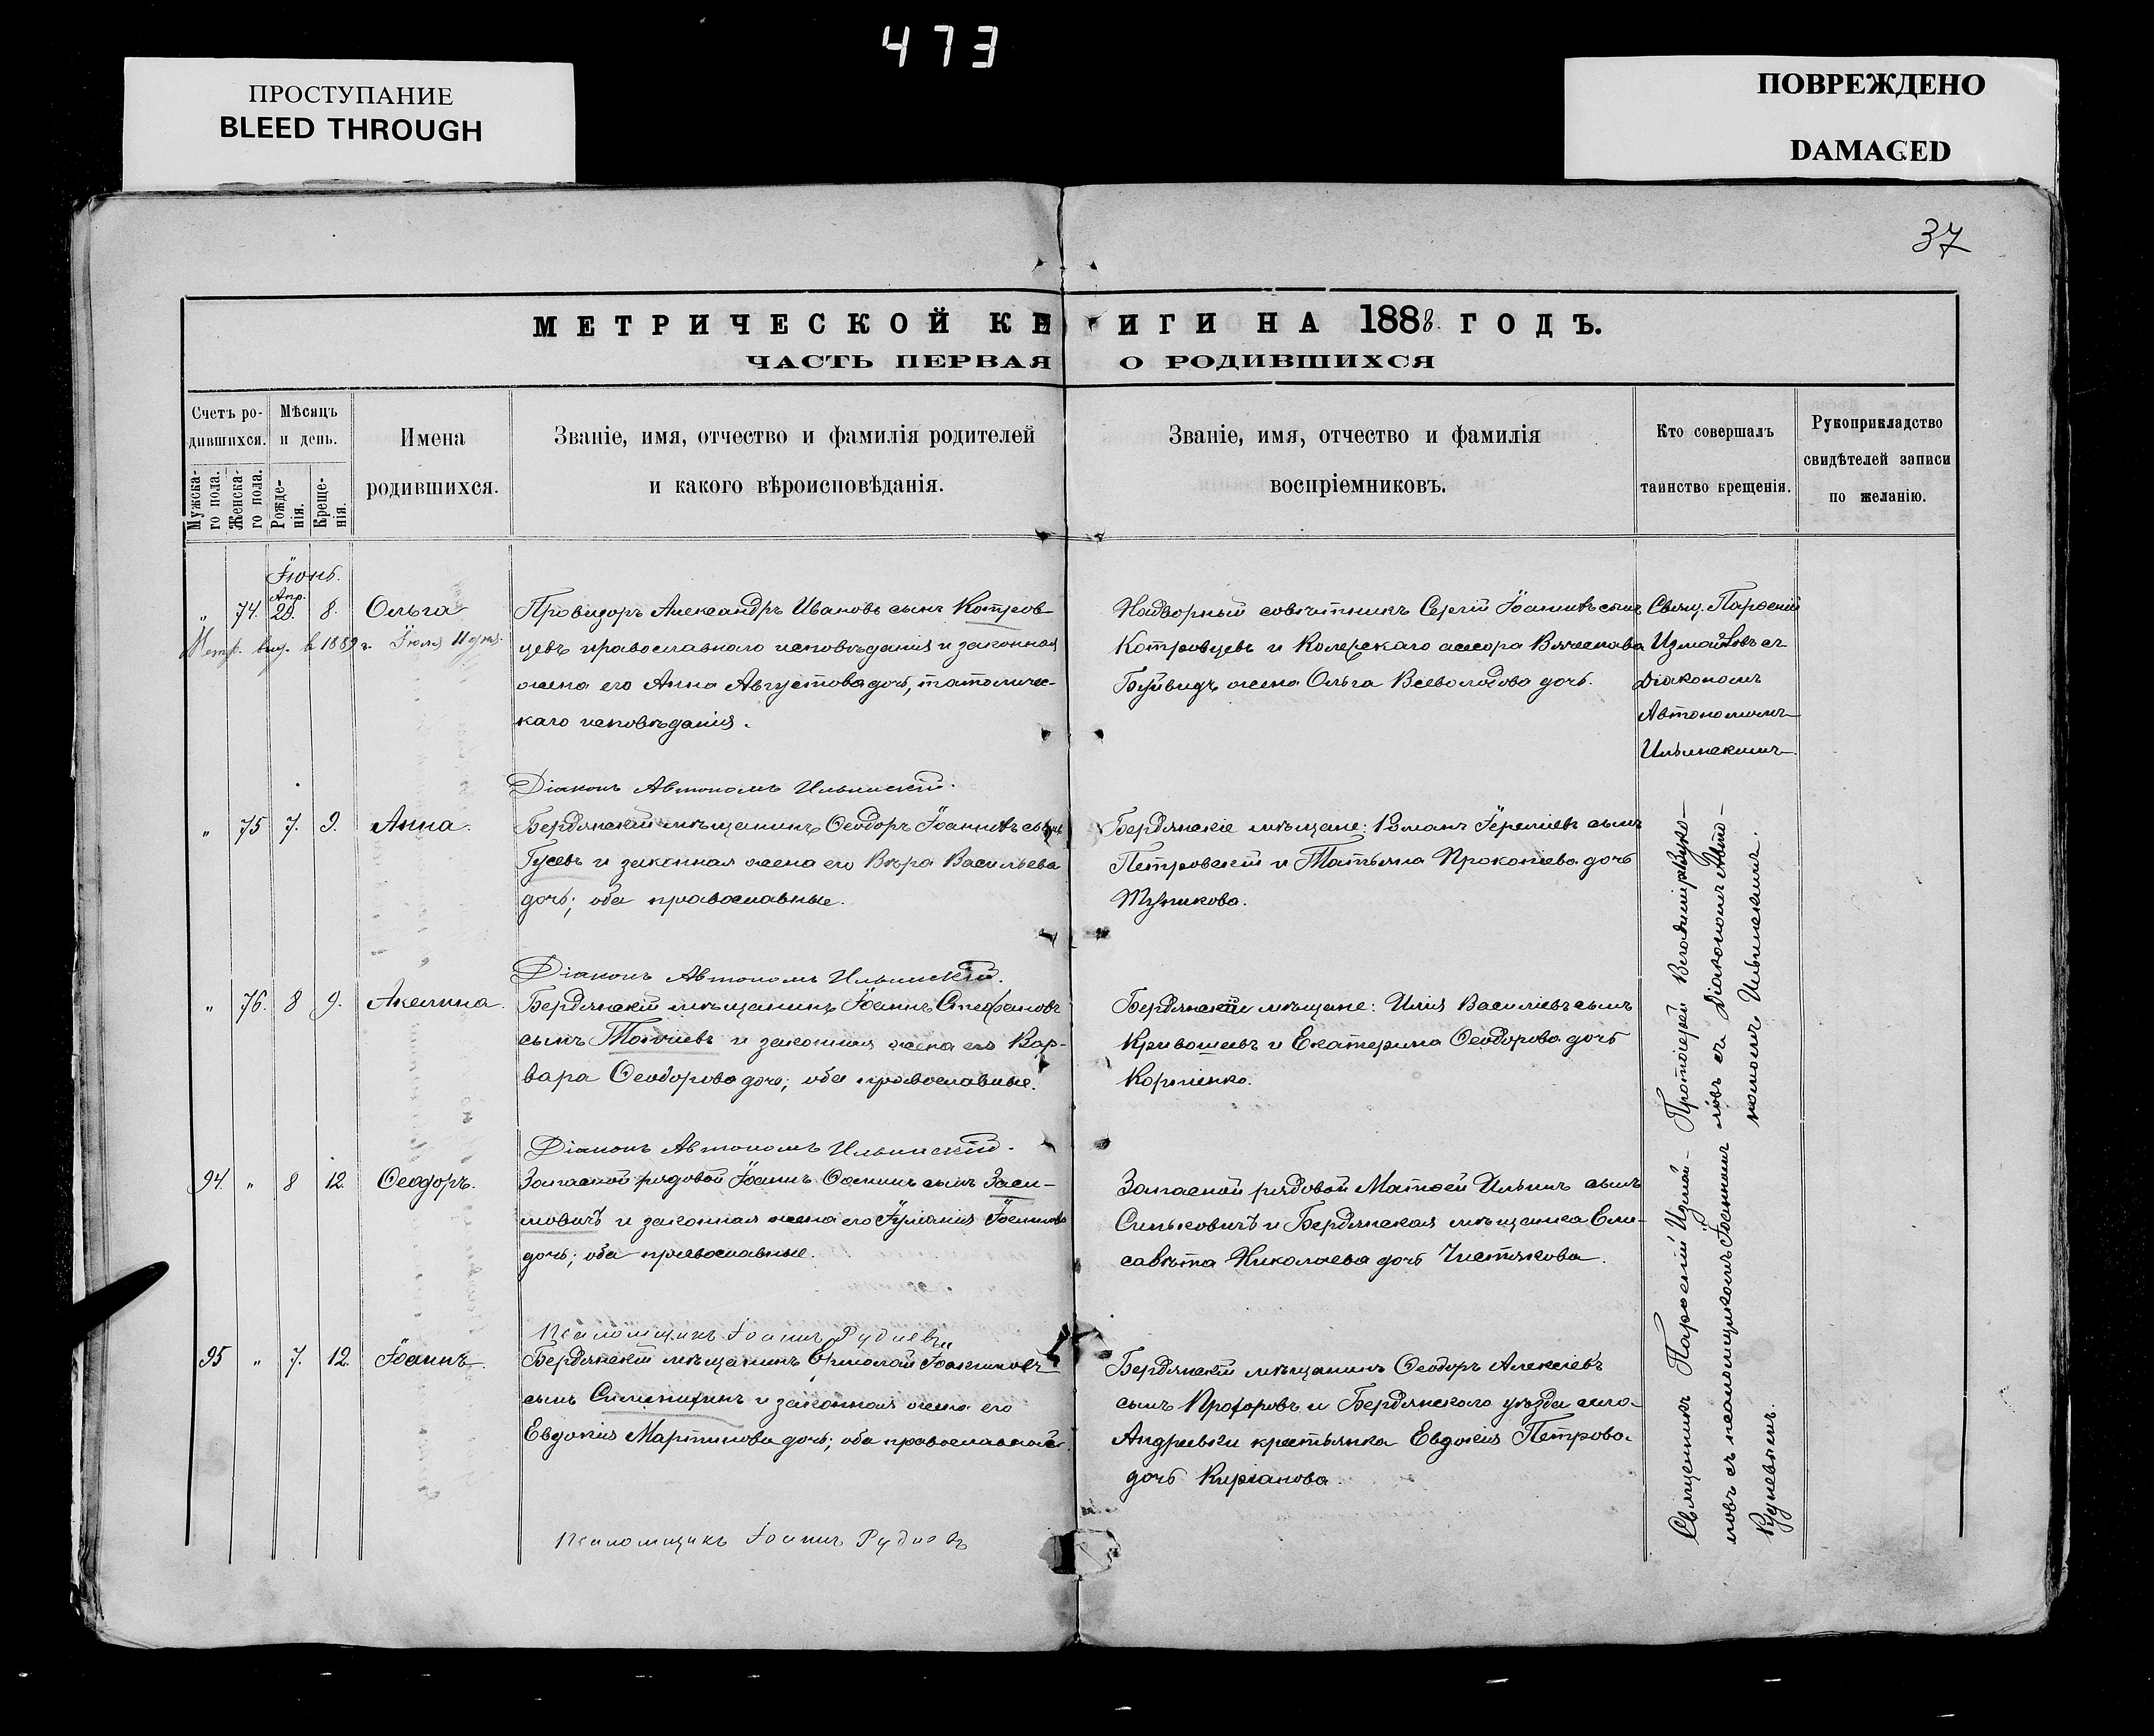 473
ПРОСТУПАНИЕ
BLEED THROUGH
ПОВРЕЖДЕНО
DAMAGED
37
МЕТРИЧЕСКОЙ КН ИГИ НА 1888 ГОДЪ.
ЧАСТЬ ПЕРВАЯ О РОДИВШИХСЯ
Счетъ ро-
дившихся.
Мужска-
го пола.
Женска-
го пола.
Мѣсяцъ
и день.
Рожде-
нія.
Креще-
нія.
Имена
родившихся.
Званіе, имя, отчество и фамилія родителей
и какого вѣроисповѣданія.
Званіе, имя, отчество и фамилія
воспріемниковъ.
Кто совершалъ
таинство крещенія.
Рукоприкладство
свидѣтелей записи
по желанію.
Іюнь.
Апр.
" 74. 20. 8. Ольга
Метр. выд. в 1889 г. Іюля 11 дня.
Провизоръ Александръ Ивановъ сынъ Котров-
цевъ православнаго исповѣданія и законная
жена его Анна Августова дочь, католичес-
каго исповѣданія.
Надворный совѣтникъ Сергій Іоаннъ сынъ
Котровцевъ и Колежскаго асесора Вячеслава
Буйвидъ жена Ольга Всеволодова дочь.
Свящ. Парѳеній
Измайловъ съ
Діакономъ
Автономомъ
Ильинскимъ.
Діаконъ Автономъ Ильинскій.
" 75 7. 9. Анна.
Бердянскій мѣщанинъ Ѳеодоръ Іоанновъ сынъ
Гусевъ и законная жена его Вѣра Васильева
дочь; оба православные.
Бердянскіе мѣщане: Романъ Іереміевъ сынъ
Петровскій и Татьяна Прокопіева дочь
Діаконъ Автономъ Ильинскій.
" 76. 8 9. Акилина.
Бердянскій мѣщанинъ Іоаннъ Стефановъ
сынъ и законная жена его Вар-
вара Ѳеодорова дочь; оба православные.
Бердянскіе мѣщане: Илія Василіевъ сынъ
Кривошеевъ и Екатерина Ѳеодорова дочь
Корніенко.
Протоіерей Владиміръ
ловъ съ Діакономъ Авто-
номомъ Ильинскимъ.
Діаконъ Автономъ Ильинскій.
94. " 8 12. Ѳеодоръ.
Запасной рядовой Іоаннъ Ѳоминъ сынъ Заси-
мовичъ и законная жена его Іуліанія Іоаннова
дочь; оба православные.
Запасной рядовой Матѳей Ильинъ сынъ
Синьковичъ и Бердянская мѣщанка Ели-
савѣта Николаева дочь Чистякова.
Псаломщикъ Іоаннъ Рудневъ
95 " 7. 12. Іоаннъ.
Бердянскій мѣщанинъ Ермолай Іоакимовъ
сынъ и законная жена его
Евдокія Мартинова дочь; оба православные.
Бердянскій мѣщанинъ Ѳеодоръ Алексіевъ
сынъ Прохоровъ и Бердянскаго уѣзда села
Андреевки крестьянка Евдокія Петрова
дочь Кирьянова.
Священникъ Парѳеній Измай-
ловъ съ псаломщикомъ Іоанномъ
Рудневымъ.
Псаломщикъ Іоаннъ Рудневъ